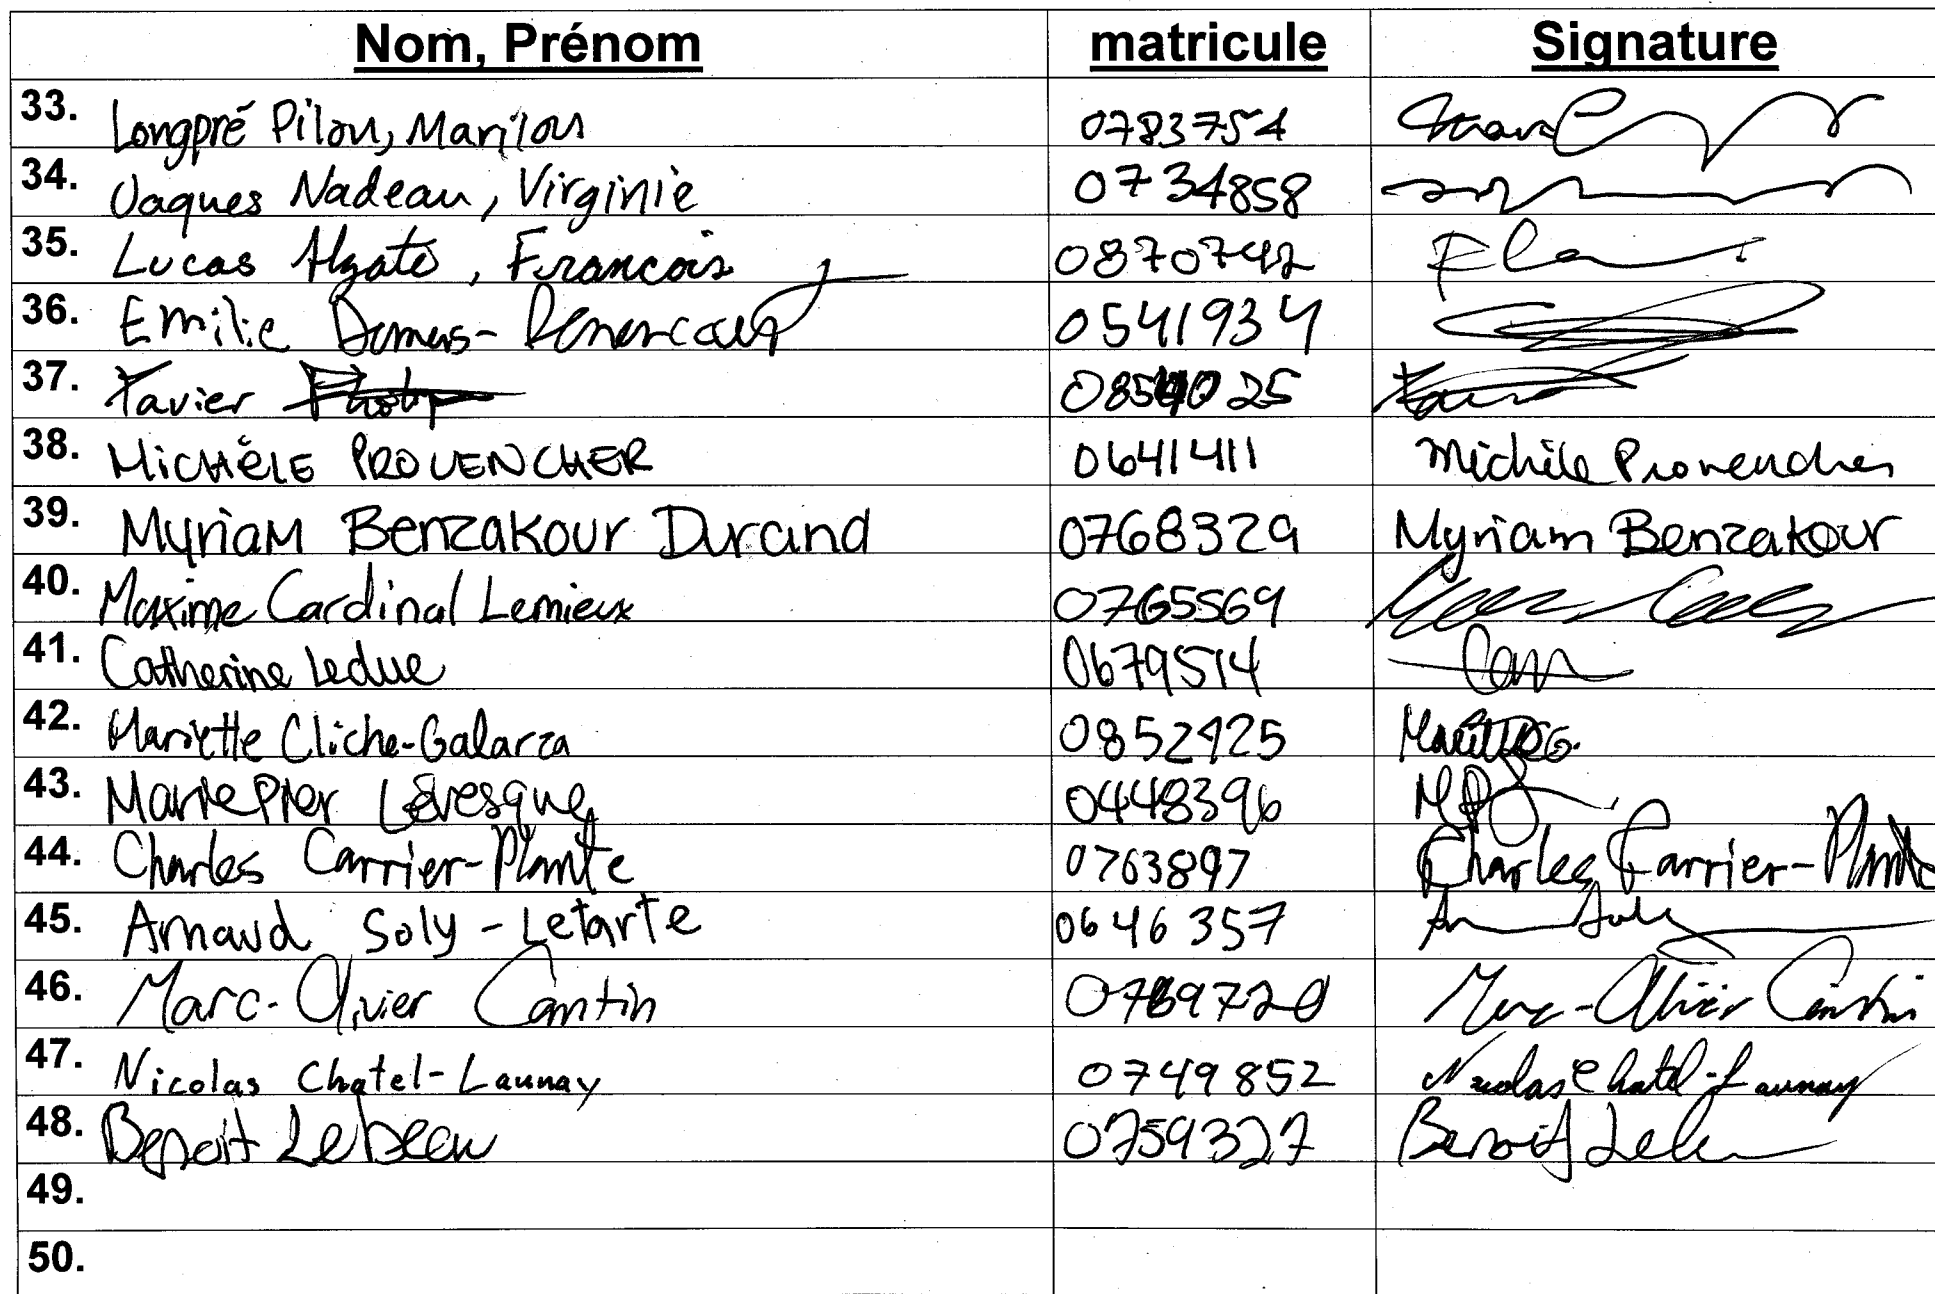 Nom, Prénom matricule Signature
33. Longpré Pilon, Marilou 0783754
34. Jaques Nadeau, Virginie 0734858
35. Lucas Alzate, Francois 0870742
36. Emilie Demers- 0541934
37. Xavier
38. MICHÈLE PROVENCHER 0641411 Michèle Provencher
39. Myriam Benzakour Durand 0768329 Myriam Benzakour
40. Maxime Cardinal Lemieux 0765569
41. Catherine Leduc 0679514
42. Mariette Cliche-Galarza 0852425
43. Marie Pier Lévesque 0448396
44. Charles Carrier-Plante 0763897 Charles Carrier-Plante
45. Arnaud Soly-Letarte 0646357
46. Marc-Olivier Cantin Marc-Olivier Cantin
47. Nicolas Chatel-Launay 0749852 Nicolas Chatel-Launay
48. Benoit Lebeau 0759327 Benoit
49.
50.